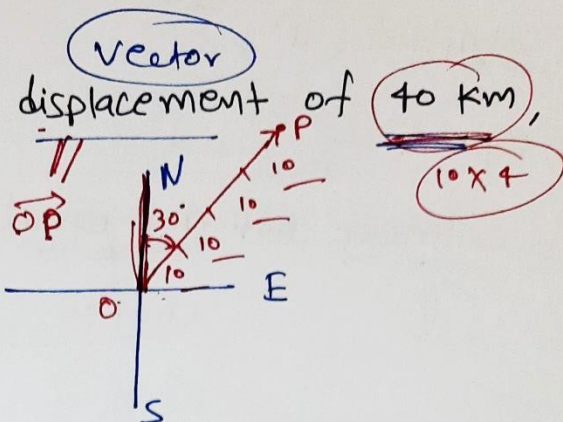 vector
displacement of 40 Km,
10 x 4
OP
N
P
30°
10
10
10
10
O
E
S